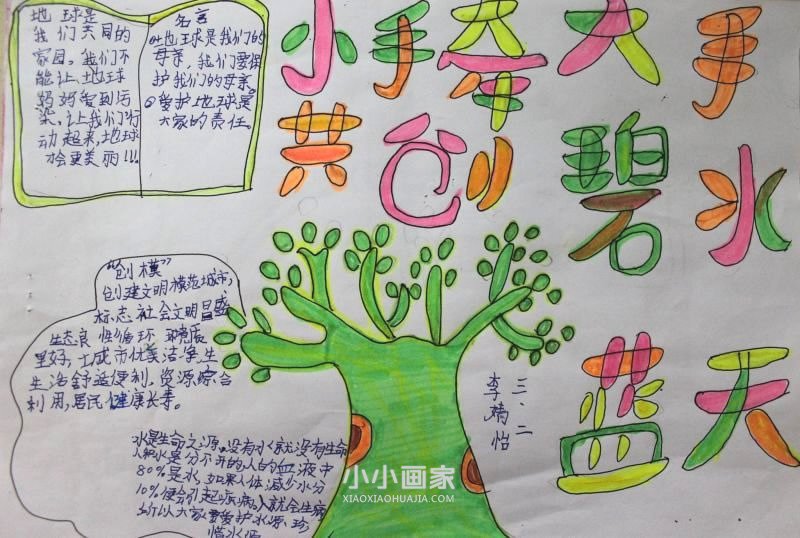 小手牵大手
共创碧水
蓝天
地球是
我们共同的
家园。我们不
能让地球
妈妈受到污
染,让我们行
动起来,地球
才会更美丽!!!
名言
①地球是我们的
母亲,我们要保
护我们的母亲。
②爱护地球是
大家的责任。
“创模”
创建文明模范城市,
标志社会文明昌盛
生态良性循环 环境质
里好,城市优美洁净,生
生活舒适便利,资源综合
利用,居民健康长寿。
三、二
李婧怡
水是生命之源。没有水就没有生命
人和水是分不开的人的血液中
80%是水,如果人体减少水分
10%便会引起疾病。人就会生病
所以大家要爱护水源、珍
惜水源
小小画家
XIAOXIAOHUAJIA.COM